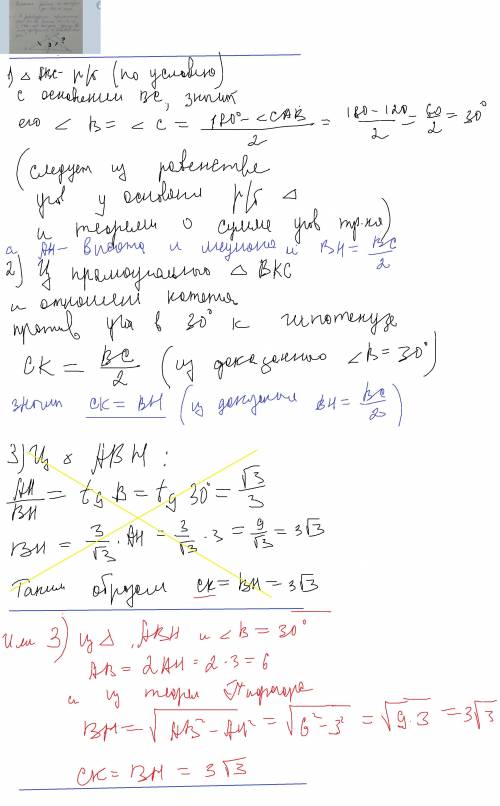 1) △ ВКС- р/б (по условию)
с основанием ВС, значит
его ∠ B = ∠ C = (180° - ∠CAB)/2 = (180-120)/2 = 60/2 = 30°
(следует из равенства
углов у основания р/б △
и теоремы о сумме углов тр-ка)
а АН- высота и медиана и BH = BC/2
2) Из прямоугольного △ BKC
и отношения катета
против угла в 30° к гипотенузе
CK = BC/2 (из доказанного ∠B = 30°)
значит CK = BH (из доказанного BH = BC/2)
3) Из △ ABH :
AH/BH = tg B = tg 30° = √3/3
BH = 3/√3 · AH = 3/√3 · 3 = 9/√3 = 3√3
Таким образом CK = BH = 3√3
Или 3) из △ ABH и ∠B = 30°
AB = 2AH = 2·3 = 6
и из теоремы Пифагора
BH = √(AB² - AH²) = √(6² - 3²) = √(9·3) = 3√3
CK = BH = 3√3